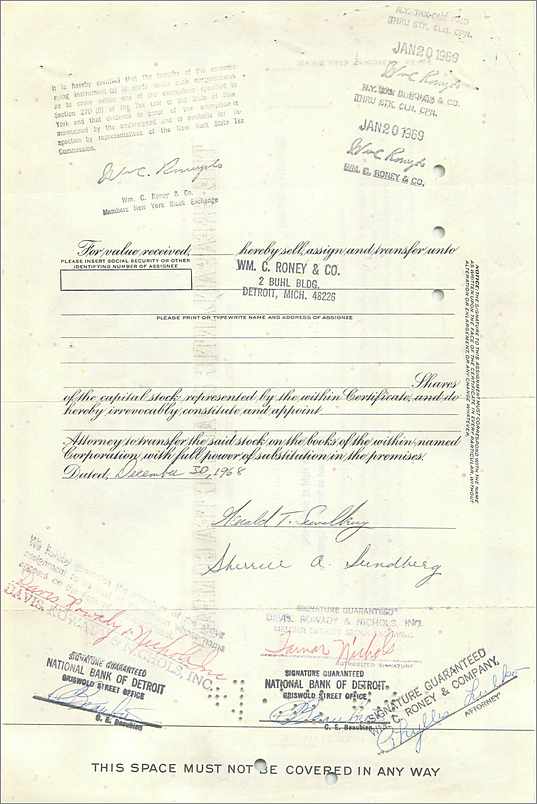 N.Y. TAX-
THRU STK. CLR. CPN.
JAN 20 1969
Wm C. Roney & Co
N.Y. &
THRU STK. CLR. CPN.
JAN 20 1969
Wm C. Roney & Co
WM. C. RONEY & CO.
It is hereby certified that the transfer of the accompa-
nying instrument is
as to come within one of the exemptions specified in
Section 270 (5) of the Tax Law of the State of New
York and that evidence in proof of the exemption is
maintained by the undersigned and is available for in-
spection by representatives of the New York State Tax
Commission.
Wm C. Roney & Co
Wm. C. Roney & Co.
Members New York Stock Exchange
For value received, hereby sell, assign and transfer unto
PLEASE INSERT SOCIAL SECURITY OR OTHER
IDENTIFYING NUMBER OF ASSIGNEE
WM. C. RONEY & CO.
2 BUHL BLDG.
DETROIT, MICH. 48226
PLEASE PRINT OR TYPEWRITE NAME AND ADDRESS OF ASSIGNEE
Shares
of the capital stock represented by the within Certificate, and do
hereby irrevocably constitute and appoint
Attorney to transfer the said stock on the books of the within named
Corporation with full power of substitution in the premises.
Dated, December 30, 1968
NOTICE: THE SIGNATURE TO THIS ASSIGNMENT MUST CORRESPOND WITH THE NAME
AS WRITTEN UPON THE FACE OF THE CERTIFICATE IN EVERY PARTICULAR, WITHOUT
ALTERATION OR ENLARGEMENT OR ANY CHANGE WHATEVER.
Sherrill A. Sundberg
DAVIS, ROWADY & NICHOLS, INC.
SIGNATURE GUARANTEED
DAVIS, ROWADY & NICHOLS, INC.
Nichols
AUTHORIZED SIGNATURE
SIGNATURE GUARANTEED
NATIONAL BANK OF DETROIT
GRISWOLD STREET OFFICE
C. E. Beaubien
SIGNATURE GUARANTEED
NATIONAL BANK OF DETROIT
GRISWOLD STREET OFFICE
C. E. Beaubien
SIGNATURE GUARANTEED
WM. C. RONEY & COMPANY,
ATTORNEY
THIS SPACE MUST NOT BE COVERED IN ANY WAY